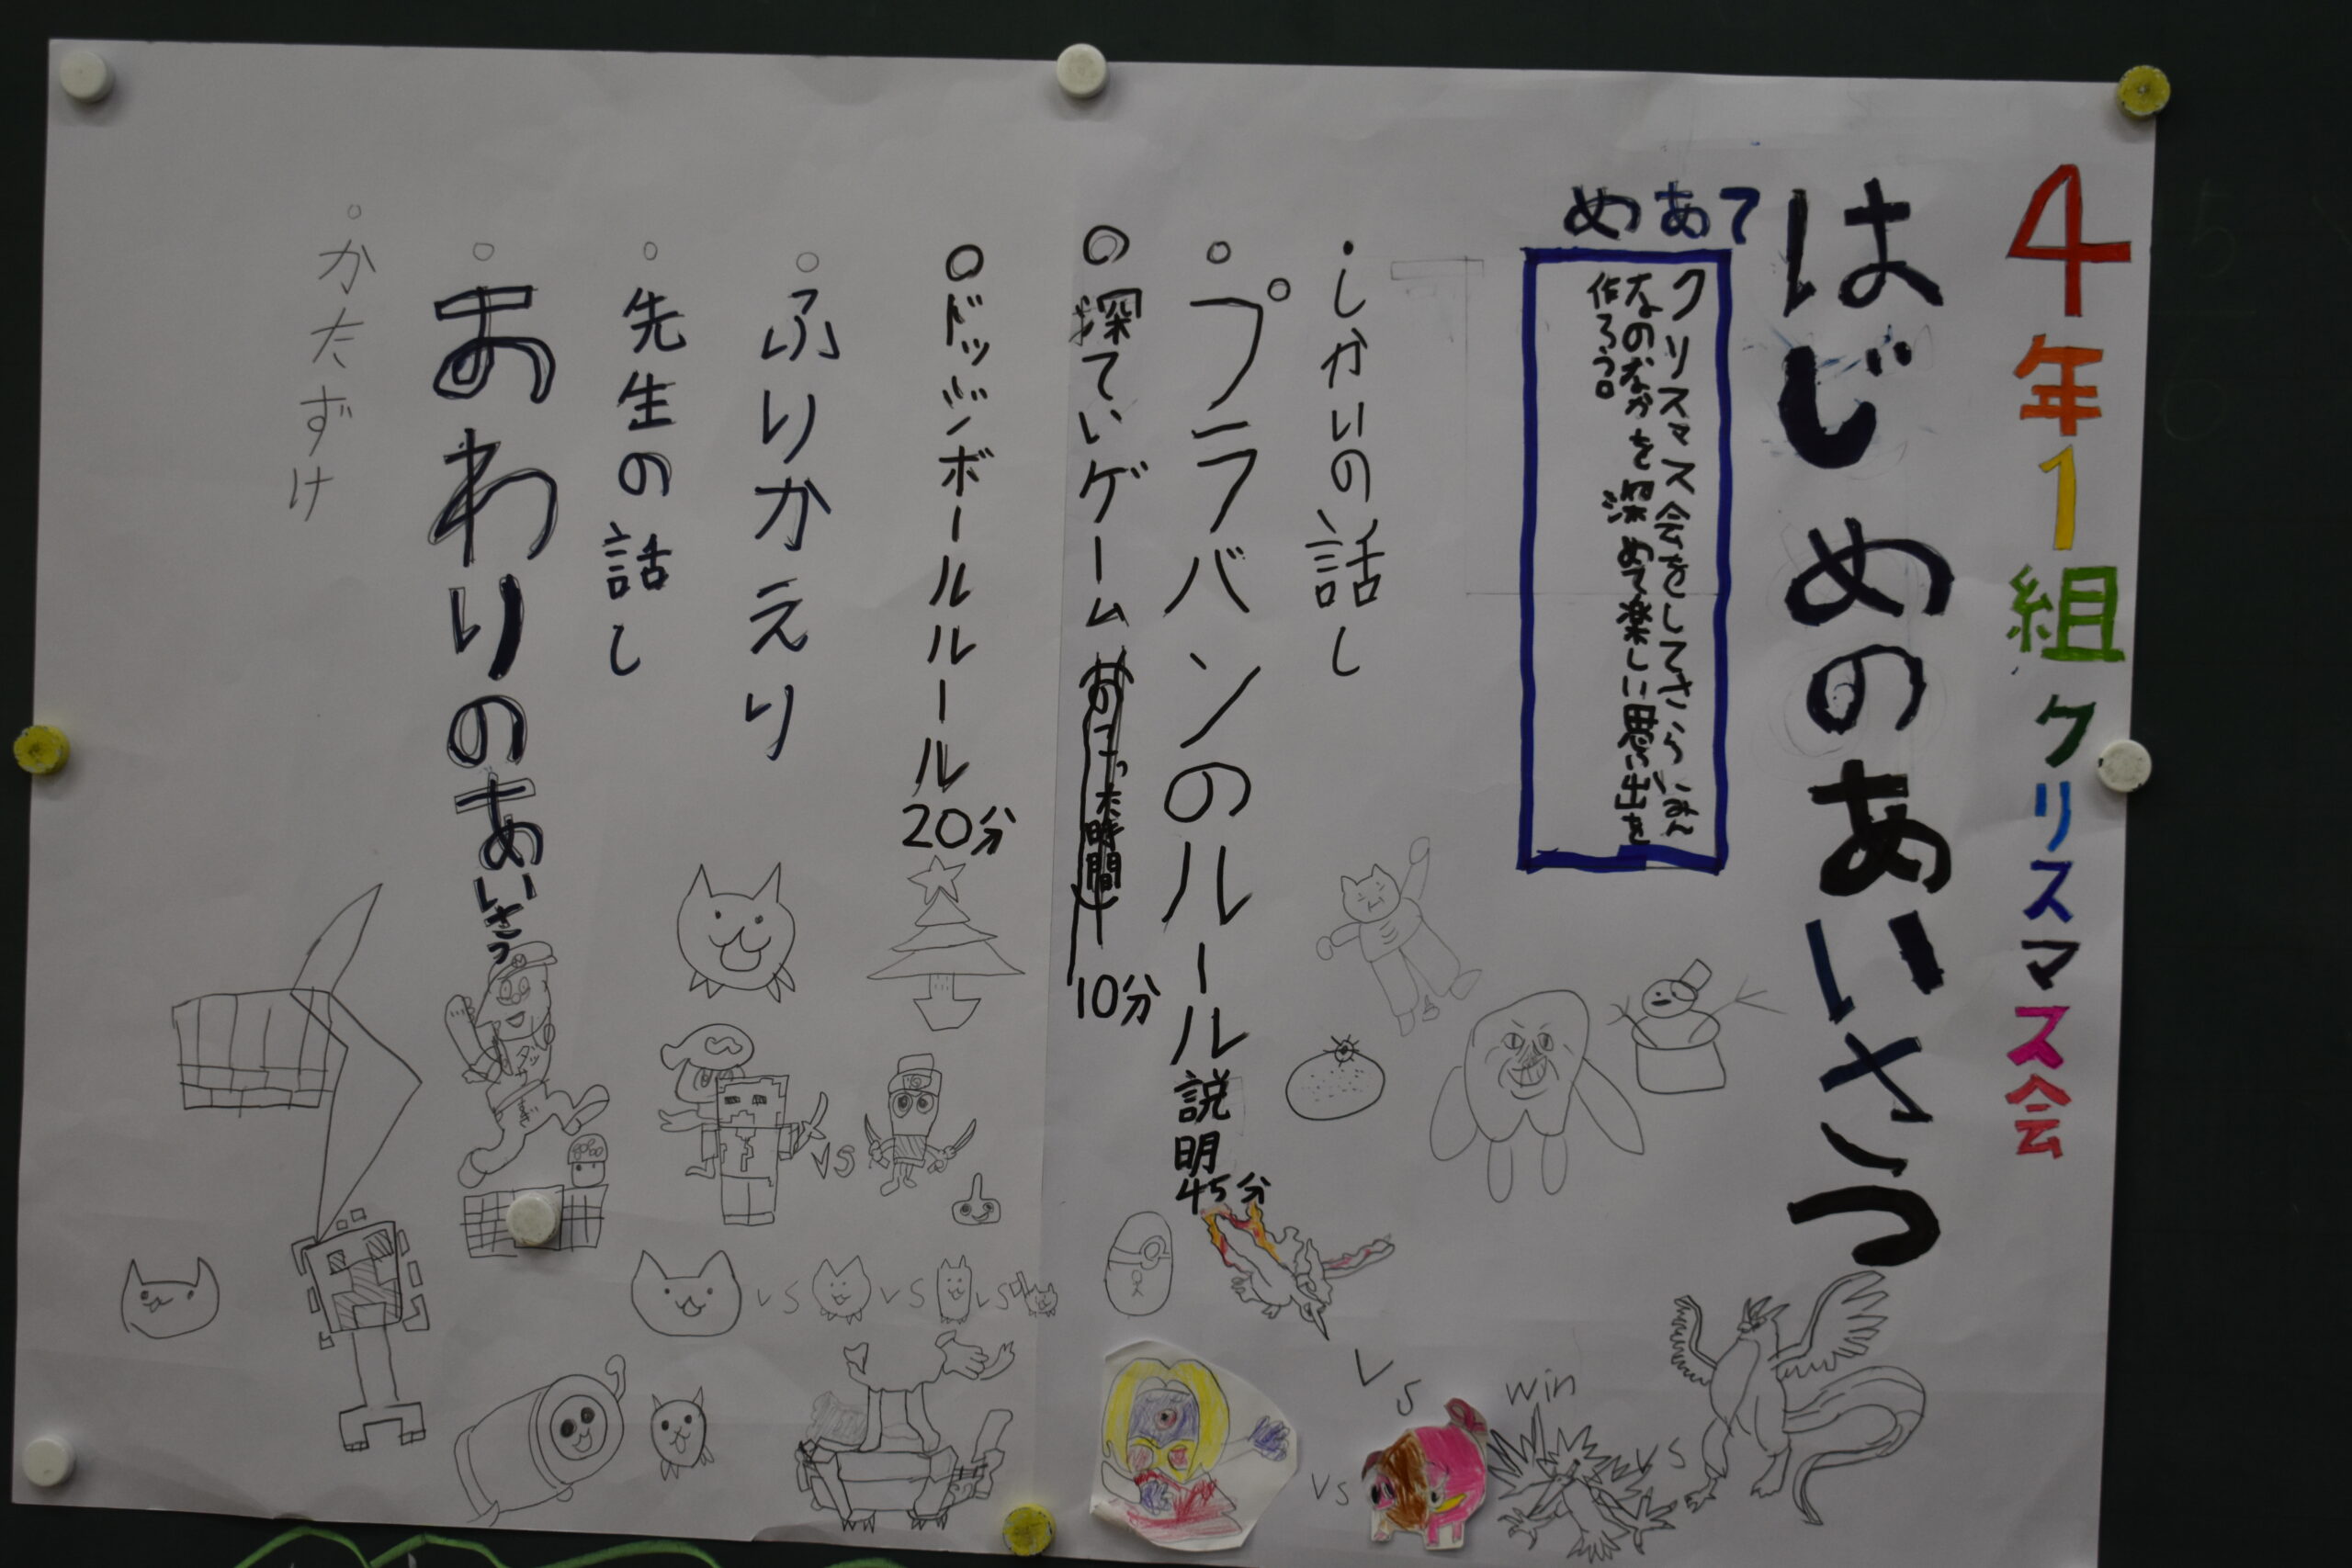 4年1組クリスマス会
はじめのあいさつ
めあて
クリスマス会をしてさらにみん
なのなかを深めて楽しい思い出を
作ろう。
・しかいの話し
○プラバンのルール説明45分
◎探ていゲーム
10分
○ドッジボールルール20分
○ふりかえり
○先生の話し
○おわりのあいさつ
○かたずけ
vs
vs
vs
vs
vs
win
vs
vs